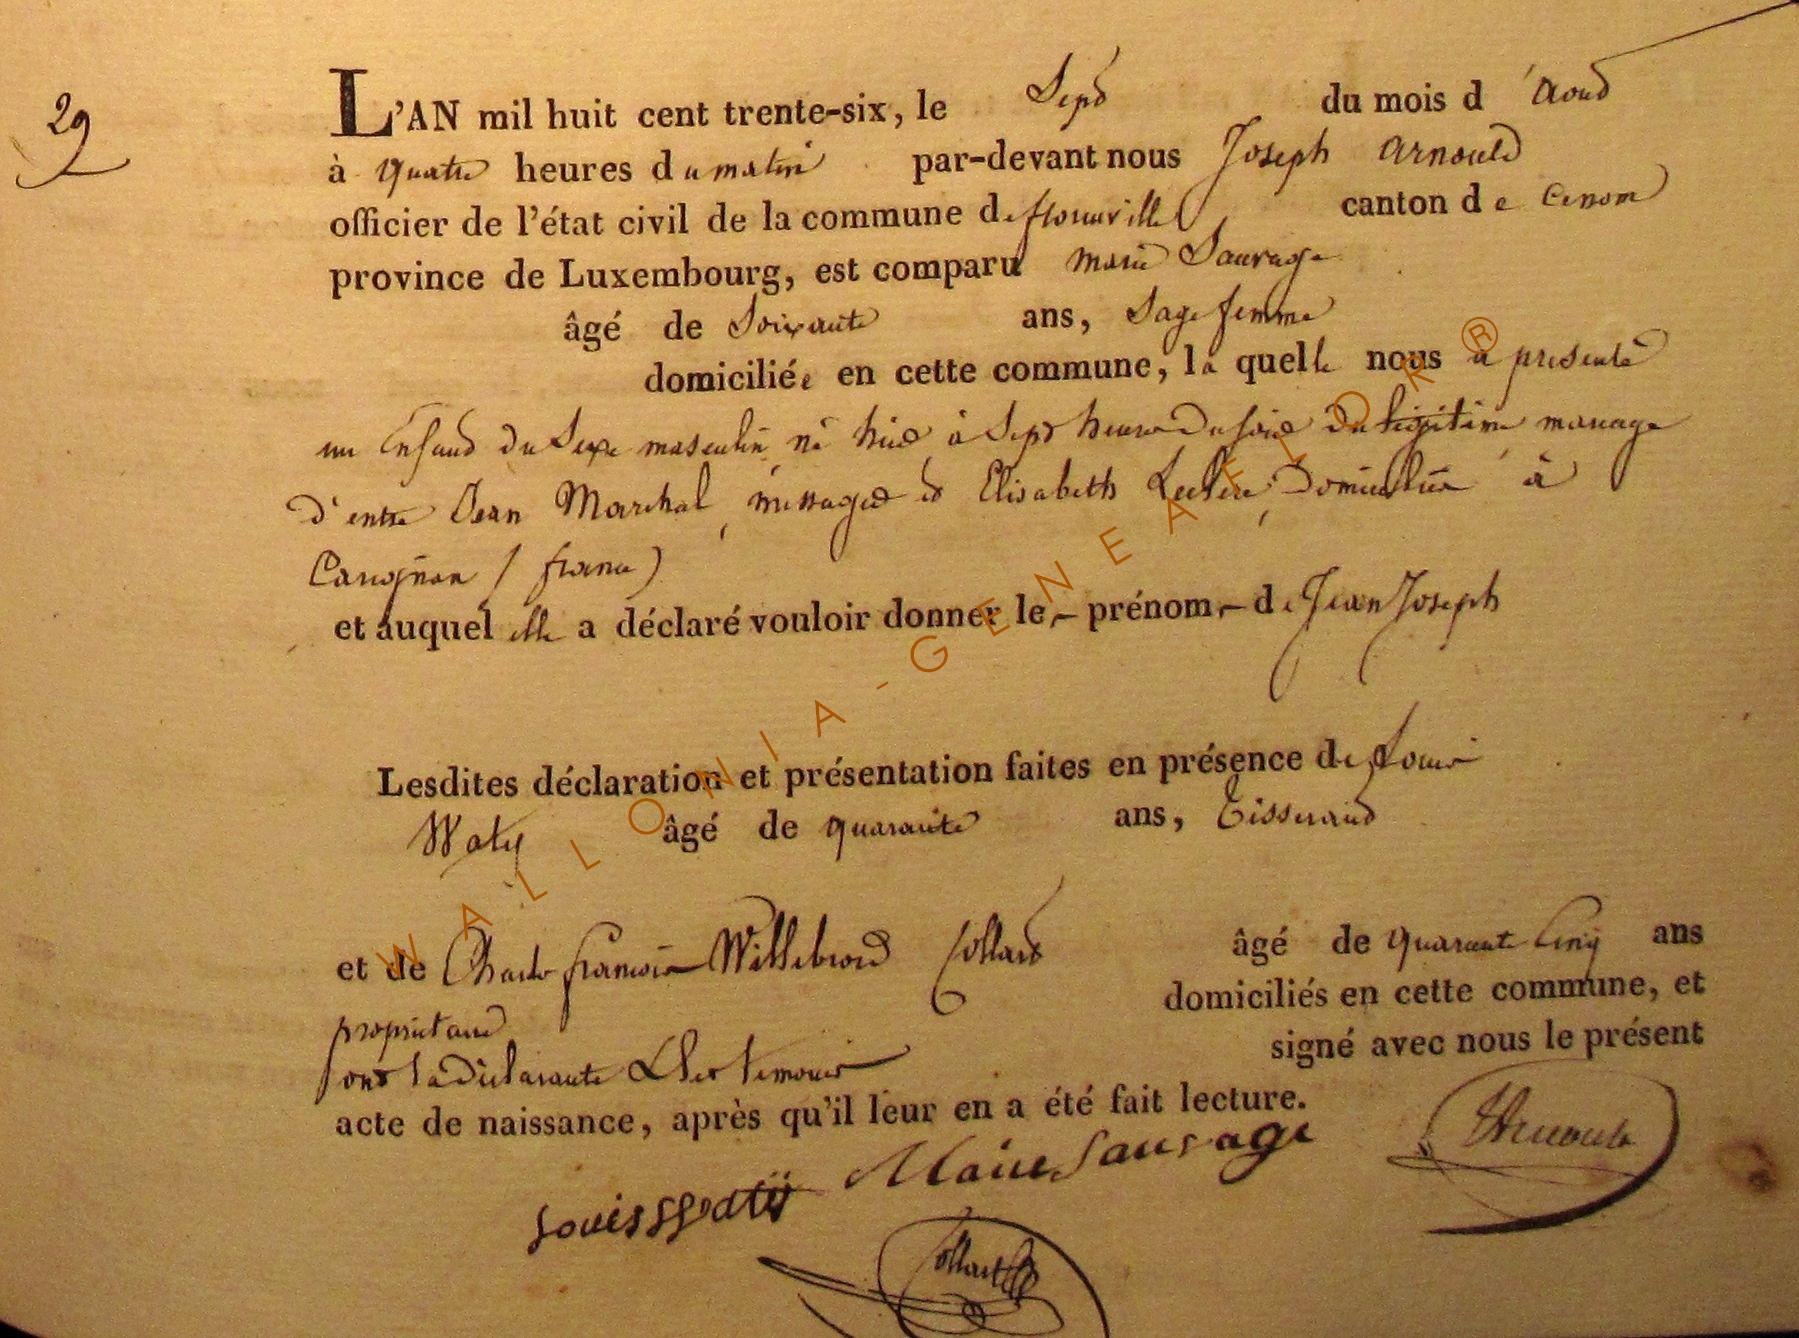 29
L'AN mil huit cent trente-six, le Sept du mois d'Aout
à quatre heures du matin par-devant nous Joseph Arnould
officier de l'état civil de la commune de florenville canton de
province de Luxembourg, est comparu marie Sauvage
âgé de Soixante ans, Sage femme
domiciliée en cette commune, la quelle nous a presenté
un Enfant du Sexe masculin né hier à Sept heures du soir du légitime mariage
d'entre Jean Marchal, messager et Elisabeth domiciliés à
Carignan (france)
et auquel elle a déclaré vouloir donner le prénom de Jean Joseph
Lesdites déclaration et présentation faites en présence de Louis
Waty âgé de quarante ans, Tisserand
et de Charles françois Willebrord Collard âgé de quarante cinq ans
propriétaire domiciliés en cette commune, et
ont la déclarante & les temoins signé avec nous le présent
acte de naissance, après qu'il leur en a été fait lecture.
Marie Sauvage
Louis Watÿ
Collard
WALLONIA-GENEAFLOR®